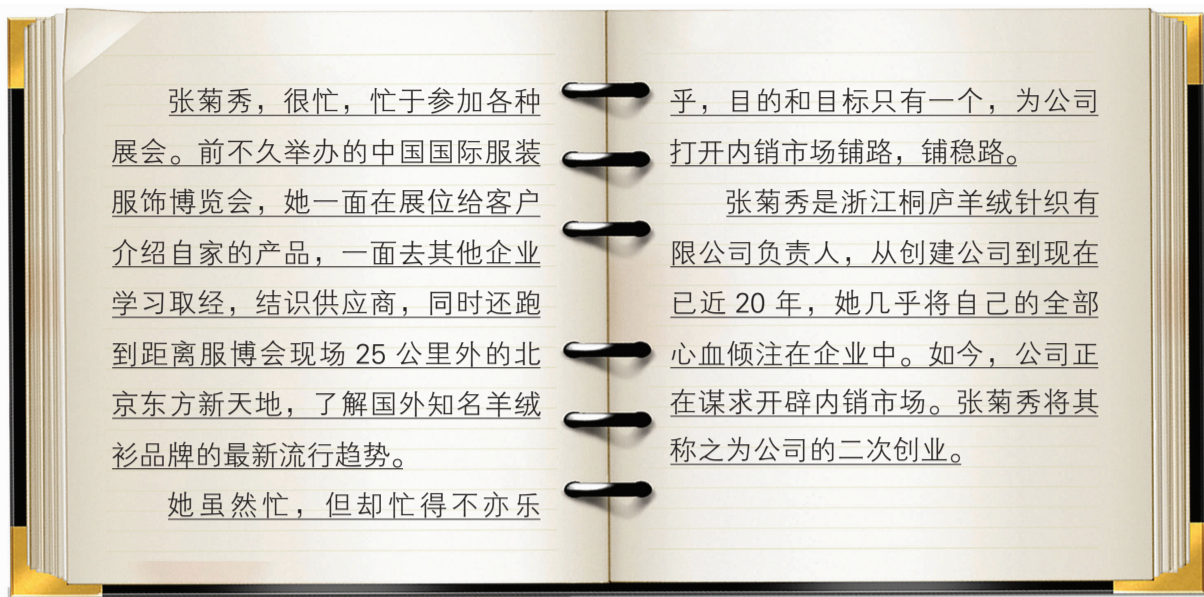 张菊秀，很忙，忙于参加各种
展会。前不久举办的中国国际服装
服饰博览会，她一面在展位给客户
介绍自家的产品，一面去其他企业
学习取经，结识供应商，同时还跑
到距离服博会现场 25 公里外的北
京东方新天地，了解国外知名羊绒
衫品牌的最新流行趋势。
她虽然忙，但却忙得不亦乐
乎，目的和目标只有一个，为公司
打开内销市场铺路，铺稳路。
张菊秀是浙江桐庐羊绒针织有
限公司负责人，从创建公司到现在
已近 20 年，她几乎将自己的全部
心血倾注在企业中。如今，公司正
在谋求开辟内销市场。张菊秀将其
称之为公司的二次创业。